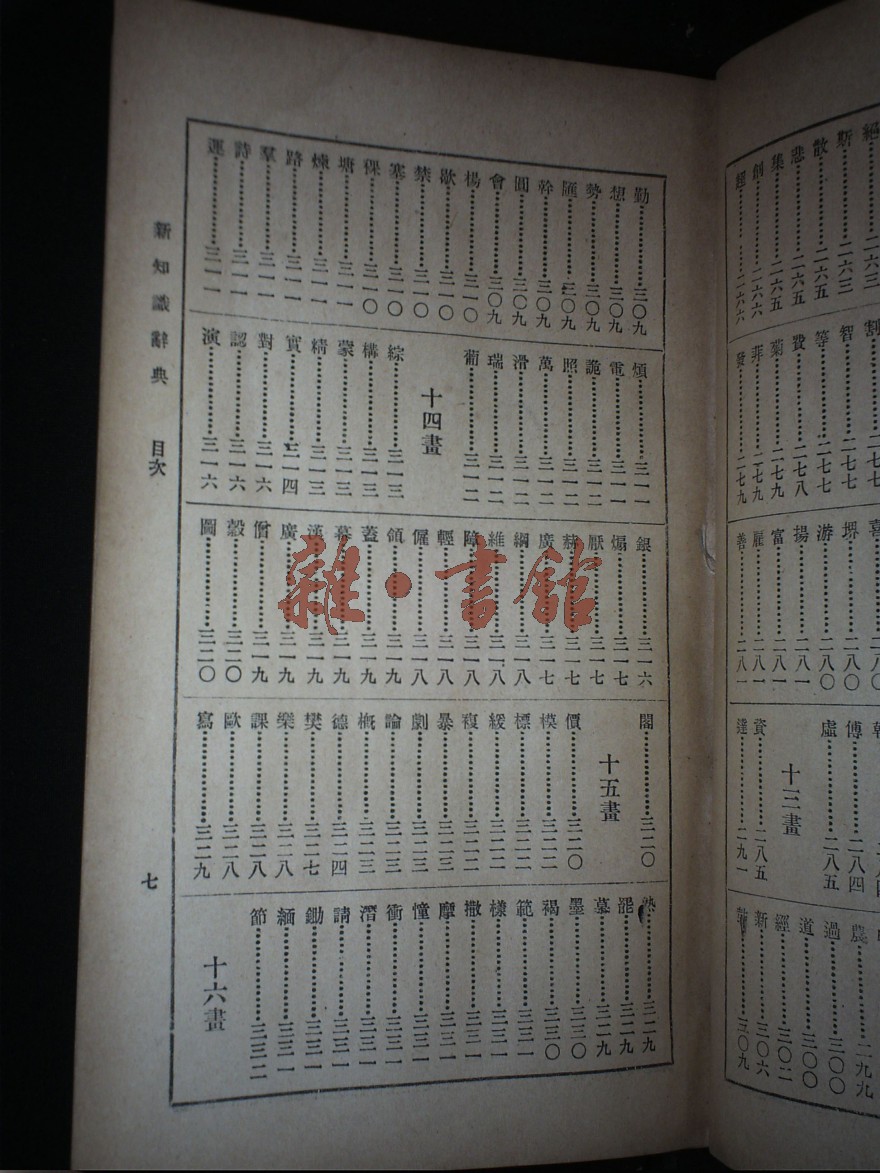 勤…………三〇九
想…………三〇九
勢…………三〇九
匯…………三〇九
幹…………三〇九
圓…………三〇九
會…………三〇九
楊…………三一〇
歇…………三一〇
禁…………三一〇
塞…………三一〇
稞…………三一〇
塘…………三一一
煉…………三一一
路…………三一一
羣…………三一一
詩…………三一一
運…………三一一
煩…………三一一
電…………三一一
詭…………三一二
照…………三一二
萬…………三一二
滑…………三一二
瑞…………三一二
葡…………三一二
十四畫
綜…………三一三
構…………三一三
蒙…………三一三
精…………三一三
實…………三一四
對…………三一六
認…………三一六
演…………三一六
銀…………三一六
煽…………三一七
厭…………三一七
赫…………三一七
廣…………三一七
綱…………三一八
維…………三一八
障…………三一八
輕…………三一八
僱…………三一八
領…………三一九
蓋…………三一九
幕…………三一九
漢…………三一九
廣…………三一九
僧…………三一九
穀…………三二〇
圖…………三二〇
閣…………三二〇
十五畫
價…………三二〇
模…………三二二
標…………三二二
緩…………三二二
複…………三二二
暴…………三二三
劇…………三二三
論…………三二三
概…………三二三
德…………三二四
樊…………三二七
樂…………三二八
課…………三二八
歐…………三二八
寫…………三二九
熱…………三二九
罷…………三二九
墓…………三二九
墨…………三三〇
褐…………三三〇
範…………三三一
樣…………三三一
撒…………三三一
摩…………三三一
憧…………三三一
衝…………三三一
潛…………三三一
請…………三三一
鋤…………三三一
緬…………三三一
節…………三三二
十六畫
新知識辭典 目次
七
雜·書館
絕
斯…………二六三
散…………二六五
悲…………二六五
集…………二六五
創…………二六六
超…………二六六
割
智…………二七七
等…………二七七
費…………二七八
菊…………二七九
菲…………二七九
發…………二七九
喜…………二八〇
堺…………二八〇
游…………二八〇
揚…………二八一
富…………二八一
雇…………二八一
善…………二八一
傅…………二八四
虛…………二八五
十三畫
資…………二八五
達…………二九一
農…………二九九
過…………三〇〇
道…………三〇〇
經…………三〇二
新…………三〇六